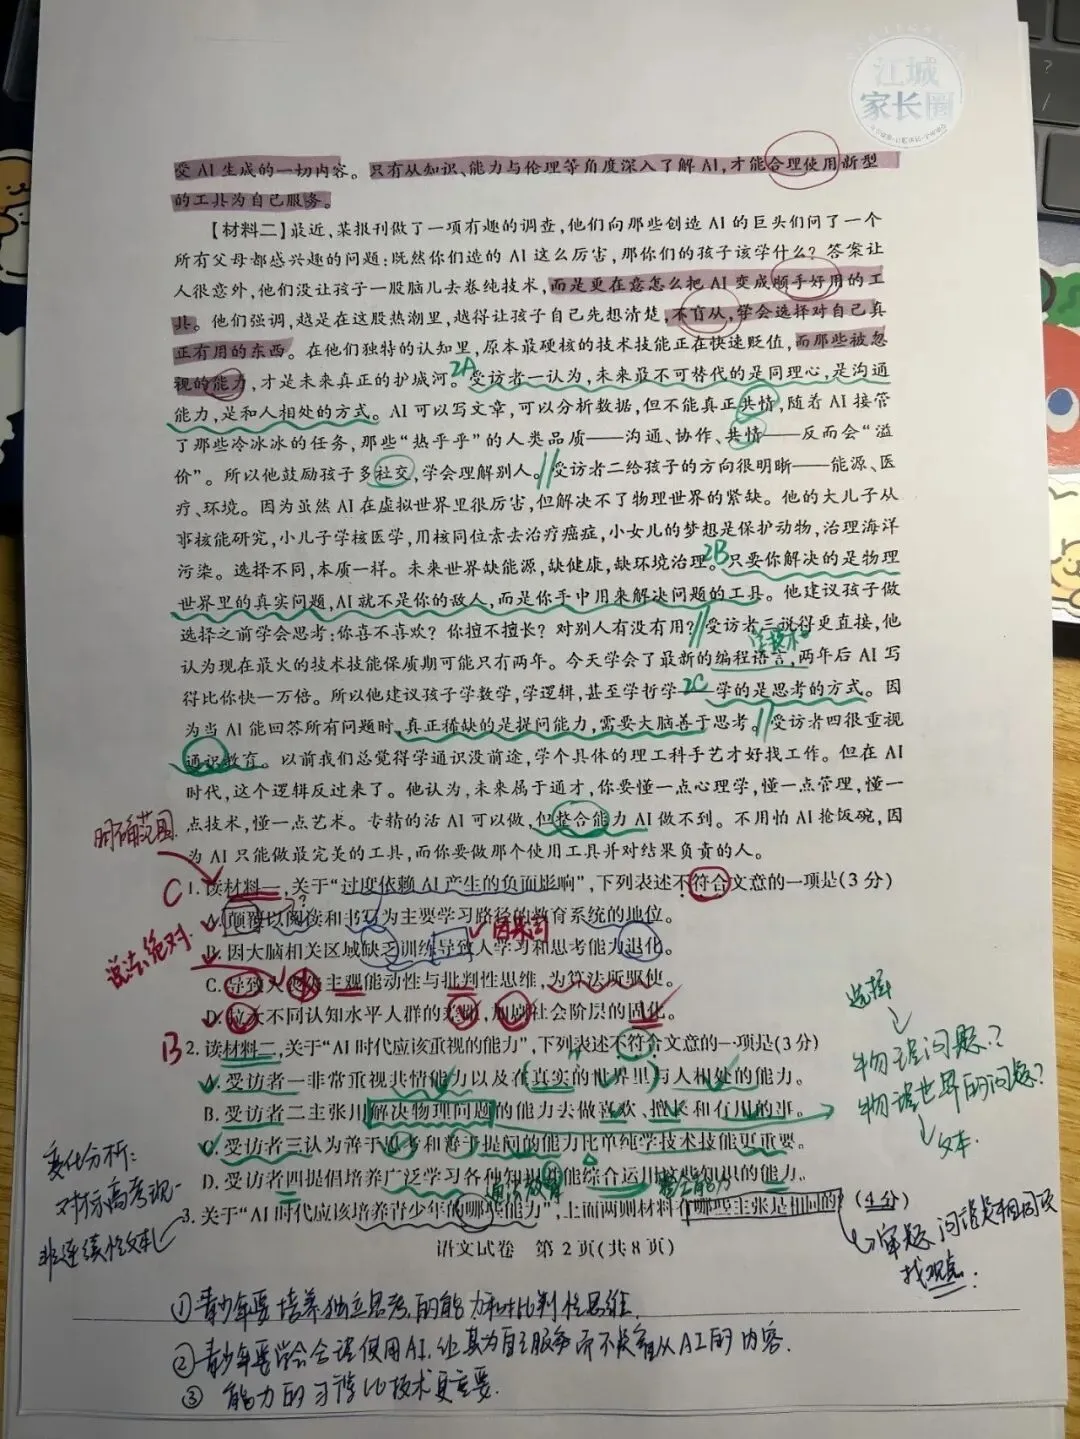 江城
家长圈
受 AI 生成的一切内容。只有从知识、能力与伦理等角度深入了解 AI,才能合理使用新型
的工具为自己服务。
【材料二】最近,某报刊做了一项有趣的调查,他们向那些创造 AI 的巨头们问了一个
所有父母都感兴趣的问题:既然你们造的 AI 这么厉害,那你们的孩子该学什么? 答案让
人很意外,他们没让孩子一股脑儿去卷纯技术,而是更在意怎么把 AI 变成顺手好用的工
具。他们强调,越是在这股热潮里,越得让孩子自己先想清楚,不盲从,学会选择对自己真
正有用的东西。在他们独特的认知里,原本最硬核的技术技能正在快速贬值,而那些被忽
视的能力,才是未来真正的护城河。2A受访者一认为,未来最不可替代的是同理心,是沟通
能力,是和人相处的方式。AI 可以写文章,可以分析数据,但不能真正共情,随着 AI 接管
了那些冷冰冰的任务,那些“热乎乎”的人类品质——沟通、协作、共情——反而会“溢
价”。所以他鼓励孩子多社交,学会理解别人。受访者二给孩子的方向很明晰——能源、医
疗、环境。因为虽然 AI 在虚拟世界里很厉害,但解决不了物理世界的紧缺。他的大儿子从
事核能研究,小儿子学核医学,用核同位素去治疗癌症,小女儿的梦想是保护动物,治理海洋
污染。选择不同,本质一样。未来世界缺能源,缺健康,缺环境治理。2B只要你解决的是物理
世界里的真实问题,AI 就不是你的敌人,而是你手中用来解决问题的工具。他建议孩子做
选择之前学会思考:你喜不喜欢? 你擅不擅长? 对别人有没有用? 受访者三说得更直接,他
认为现在最火的技术技能保质期可能只有两年。今天学会了最新的编程语言,两年后 AI 写
得比你快一万倍。所以他建议孩子学数学,学逻辑,甚至学哲学2C——学的是思考的方式。因
为当 AI 能回答所有问题时,真正稀缺的是提问能力,需要大脑善于思考。受访者四很重视
通识教育。以前我们总觉得学通识没前途,学个具体的理工科手艺才好找工作。但在 AI
时代,这个逻辑反过来了。他认为,未来属于通才,你要懂一点心理学,懂一点管理,懂一
点技术,懂一点艺术。专精的活 AI 可以做,但整合能力 AI 做不到。不用怕 AI 抢饭碗,因
为 AI 只能做最完美的工具,而你要做那个使用工具并对结果负责的人。
明确范围
C 1. 读材料一,关于“过度依赖 AI 产生的负面影响”,下列表述不符合文意的一项是(3 分)
A. 颠覆以阅读和书写为主要学习路径的教育系统的地位。
因果词
B. 因大脑相关区域缺乏训练导致人学习和思考能力退化。
说法绝对
C. 导致人丧失主观能动性与批判性思维,为算法所驱使。
D. 拉大不同认知水平人群的差距,加剧社会阶层的固化。
B 2. 读材料二,关于“AI 时代应该重视的能力”,下列表述不符合文意的一项是(3 分)
A. 受访者一非常重视共情能力以及在真实的世界里与人相处的能力。
B. 受访者二主张用解决物理问题的能力去做喜欢、擅长和有用的事。
C. 受访者三认为善于思考和善于提问的能力比单纯学技术技能更重要。
D. 受访者四提倡培养广泛学习各种知识并能综合运用这些知识的能力。
通识教育
整合能力
3. 关于“AI 时代应该培养青少年的哪些能力”,上面两则材料有哪些主张是相同的? (4 分)
选择
物理问题?
物理世界的问题?
文本.
变化分析:
对标高考现一
非连续性文本
审题
找观点.
语文试卷 第 2 页(共 8 页)
①青少年要培养独立思考的能力和批判性思维.
②青少年要学会合理使用AI.让其为自己服务而不是盲从AI的内容.
③ 能力的习得比技术更重要.